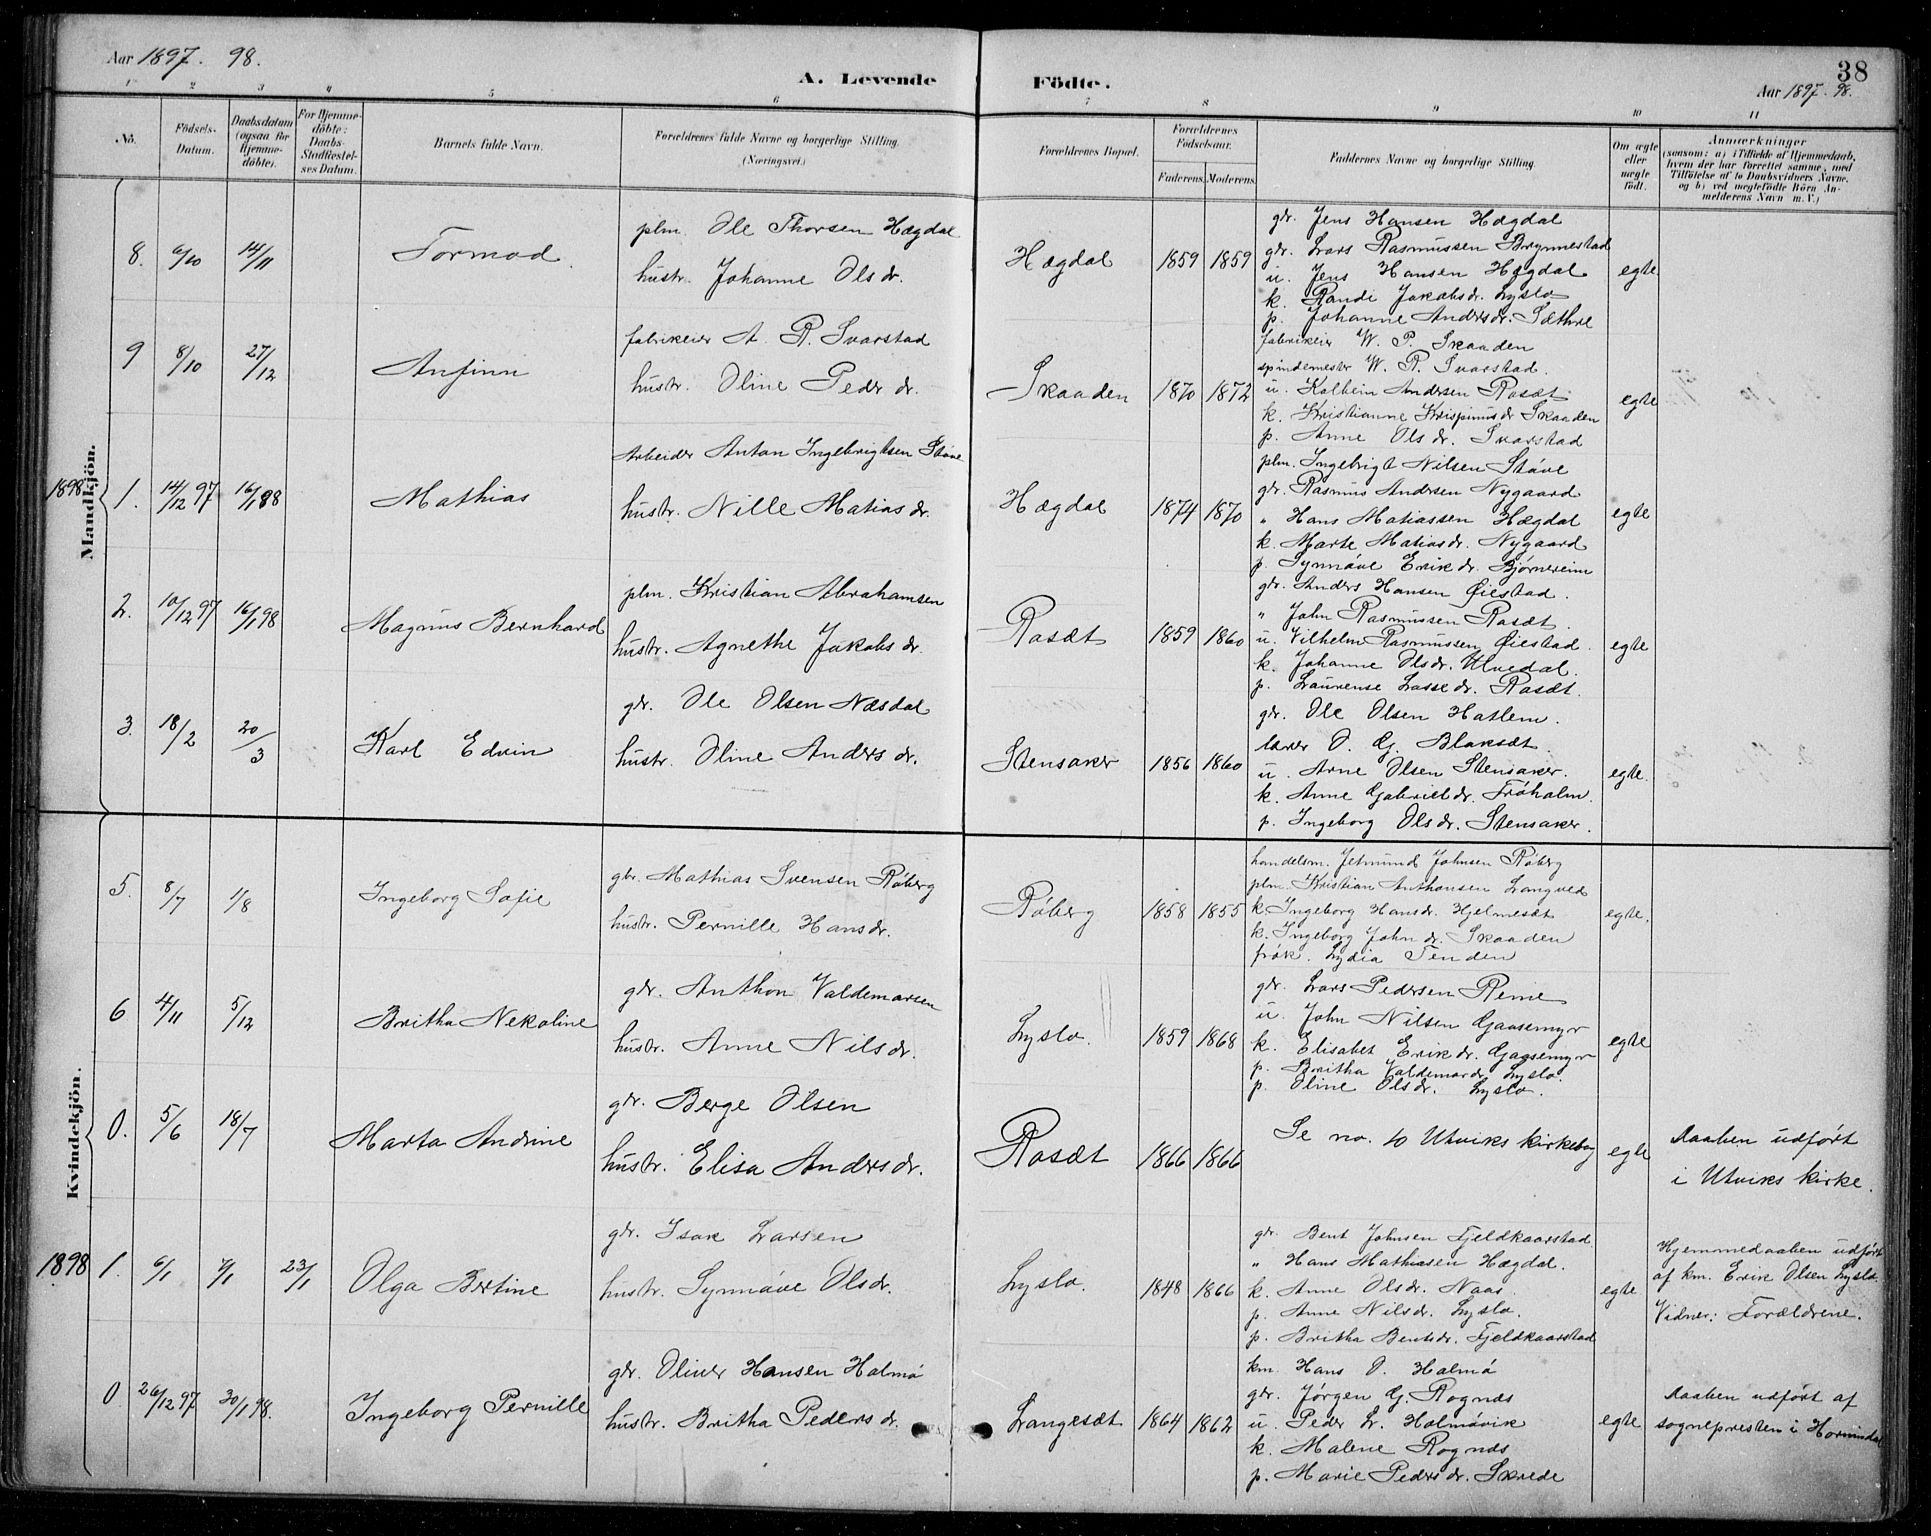 Aar 1897. 98.
A. Levende Födte.
38
Aar 1897. 98.
1 2 3 4 5 6 7 8 9 10 11
No.
Födsels-Datum.
Daabsdatum (ogsaa for Hjemme-döbte).
For Hjemme-döbte: Daabs-Stadfæstel-ses Datum.
Barnets fulde Navn.
Forældrenes fulde Navne og borgerlige Stilling. (Næringsvei.)
Forældrenes Bopæl.
Forældrenes Födselsaar.
Faderens. Moderens.
Faddernes Navne og borgerlige Stilling.
Om ægte eller uægte födt.
Anmærkninger
(saasom: a) i Tilfælde af Hjemmedaab, hvem der har forrettet samme, med Tilföielse af to Daabsvidners Navne, og b) ved uægtefödte Börn Anmelderens Navn m. V.)
Mandkjön.
8. 6/10 14/11 Tormod.
plm. Ole Thorsen Hægdal
hustr. Johanne Olsdr.
Hægdal 1859 1859
gdr. Jens Hansen Hægdal
gdr. Lars Rasmussen Brynnestad
u. Jens Hansen Hægdal
k. Randi Jakobsdr. Lyslo
p. Johanne Andersdr. Sæthre
egte
9 8/10 27/12 Anfinn
fabrikeier A. R. Svarstad
hustr. Oline Peder dr.
Skaaden 1870 1872
fabrikeier W. P. Skaaden
spindemester W. R. Svarstad.
u. Kolbein Andersen Rosæt
k. Kristianne Krispinusdr Skaaden
p. Anne Olsdr. Svarstad
egte
1898 1. 14/12 97 16/1 98 Mathias
Arbeider Anton Ingebrigtsen Støve
hustr. Nille Matias dr.
Hægdal 1874 1870
plm. Ingebrigt Nilsen Støve
gdr. Rasmus Andersen Nygaard
" Hans Matiassen Hægdal
k. Marte Matiasdr. Nygaard
p. Synnøve Erik dr. Bjørnereim
egte
2. 10/12 97 16/1 98 Magnus Bernhard
plm. Kristian Abrahamsen
hustr. Agnethe Jakobs dr.
Rosæt 1859 1860
gdr. Anders Hansen Øiestad.
" John Rasmussen Rosæt.
u. Vilhelm Rasmussen Øiestad.
k. Johanne Olsdr. Ulvedal.
p. Laurense Lasse dr. Rosæt.
egte
3. 18/2 20/3 Karl Edvin
gdr. Ole Olsen Næsdal
hustr. Oline Anders dr.
Stensaker 1856 1860
gdr. Ole Olsen Hatlem.
lærer O. G. Blaksæt.
u. Arne Olsen Stensaker.
k. Anne Gabriel dr. Frøholm.
p. Ingeborg Olsdr. Stensaker.
egte.
Kvindekjön.
5. 8/7 1/8 Ingeborg Sofie
gbr. Mathias Svensen Røberg
hustr. Pernille Hansdr.
Røberg 1858 1855
handelsm. Jetmund Johnsen Røberg
plm. Kristian Anthonsen Langved
k. Ingeborg Hansdr. Hjelmesæt
k. Ingeborg John dr. Skaaden
frøk. Lydia Tenden
egte.
6 4/11 5/12 Britha Nekoline
gdr. Anthon Valdemarsen
hustr. Anne Nilsdr.
Lyslo. 1859 1868
gdr. Lars Pedersen Reme
u. John Nilsen Gaasemyr
k. Elisabet Erik dr. Gaasemyr
p. Britha Valdemardr. Lyslo.
p. Oline Olsdr. Lyslo.
egte
0. 5/6 18/7 Marta Andrine
gdr. Berge Olsen
hustr. Elisa Andersdr.
Rosæt 1866 1866
Se no. 10 Utviks kirkebog
egte
Daaben udført
i Utviks kirke.
1898 1. 6/1 7/1 23/1 Olga Bertine
gdr. Isak Larsen
hustr. Synnøve Olsdr.
Lyslo. 1848 1866
gdr. Bent Johnsen Fjeldkaarstad
" Hans Mathiasen Hægdal.
k. Anne Olsdr. Naas.
p. Anne Nilsdr. Lyslo.
p. Britha Bentsdr. Fjeldkaarstad
egte
Hjemmedaaben udført
af km. Erik Olsen Lyslo.
Vidner: Forældrene.
0. 26/12 97 30/1 98. Ingeborg Pernille
gdr. Oliver Hansen Holmø
hustr. Britha Peders dr.
Langesæt 1864 1862
km. Hans O. Holmø
gdr. Jørgen G. Rognes
u. Peder L. Holmøvik
k. Malene Rognes
p. Marie Pedersdr. Skrede
egte
Daaben udført af
sognepresten i Hornindal